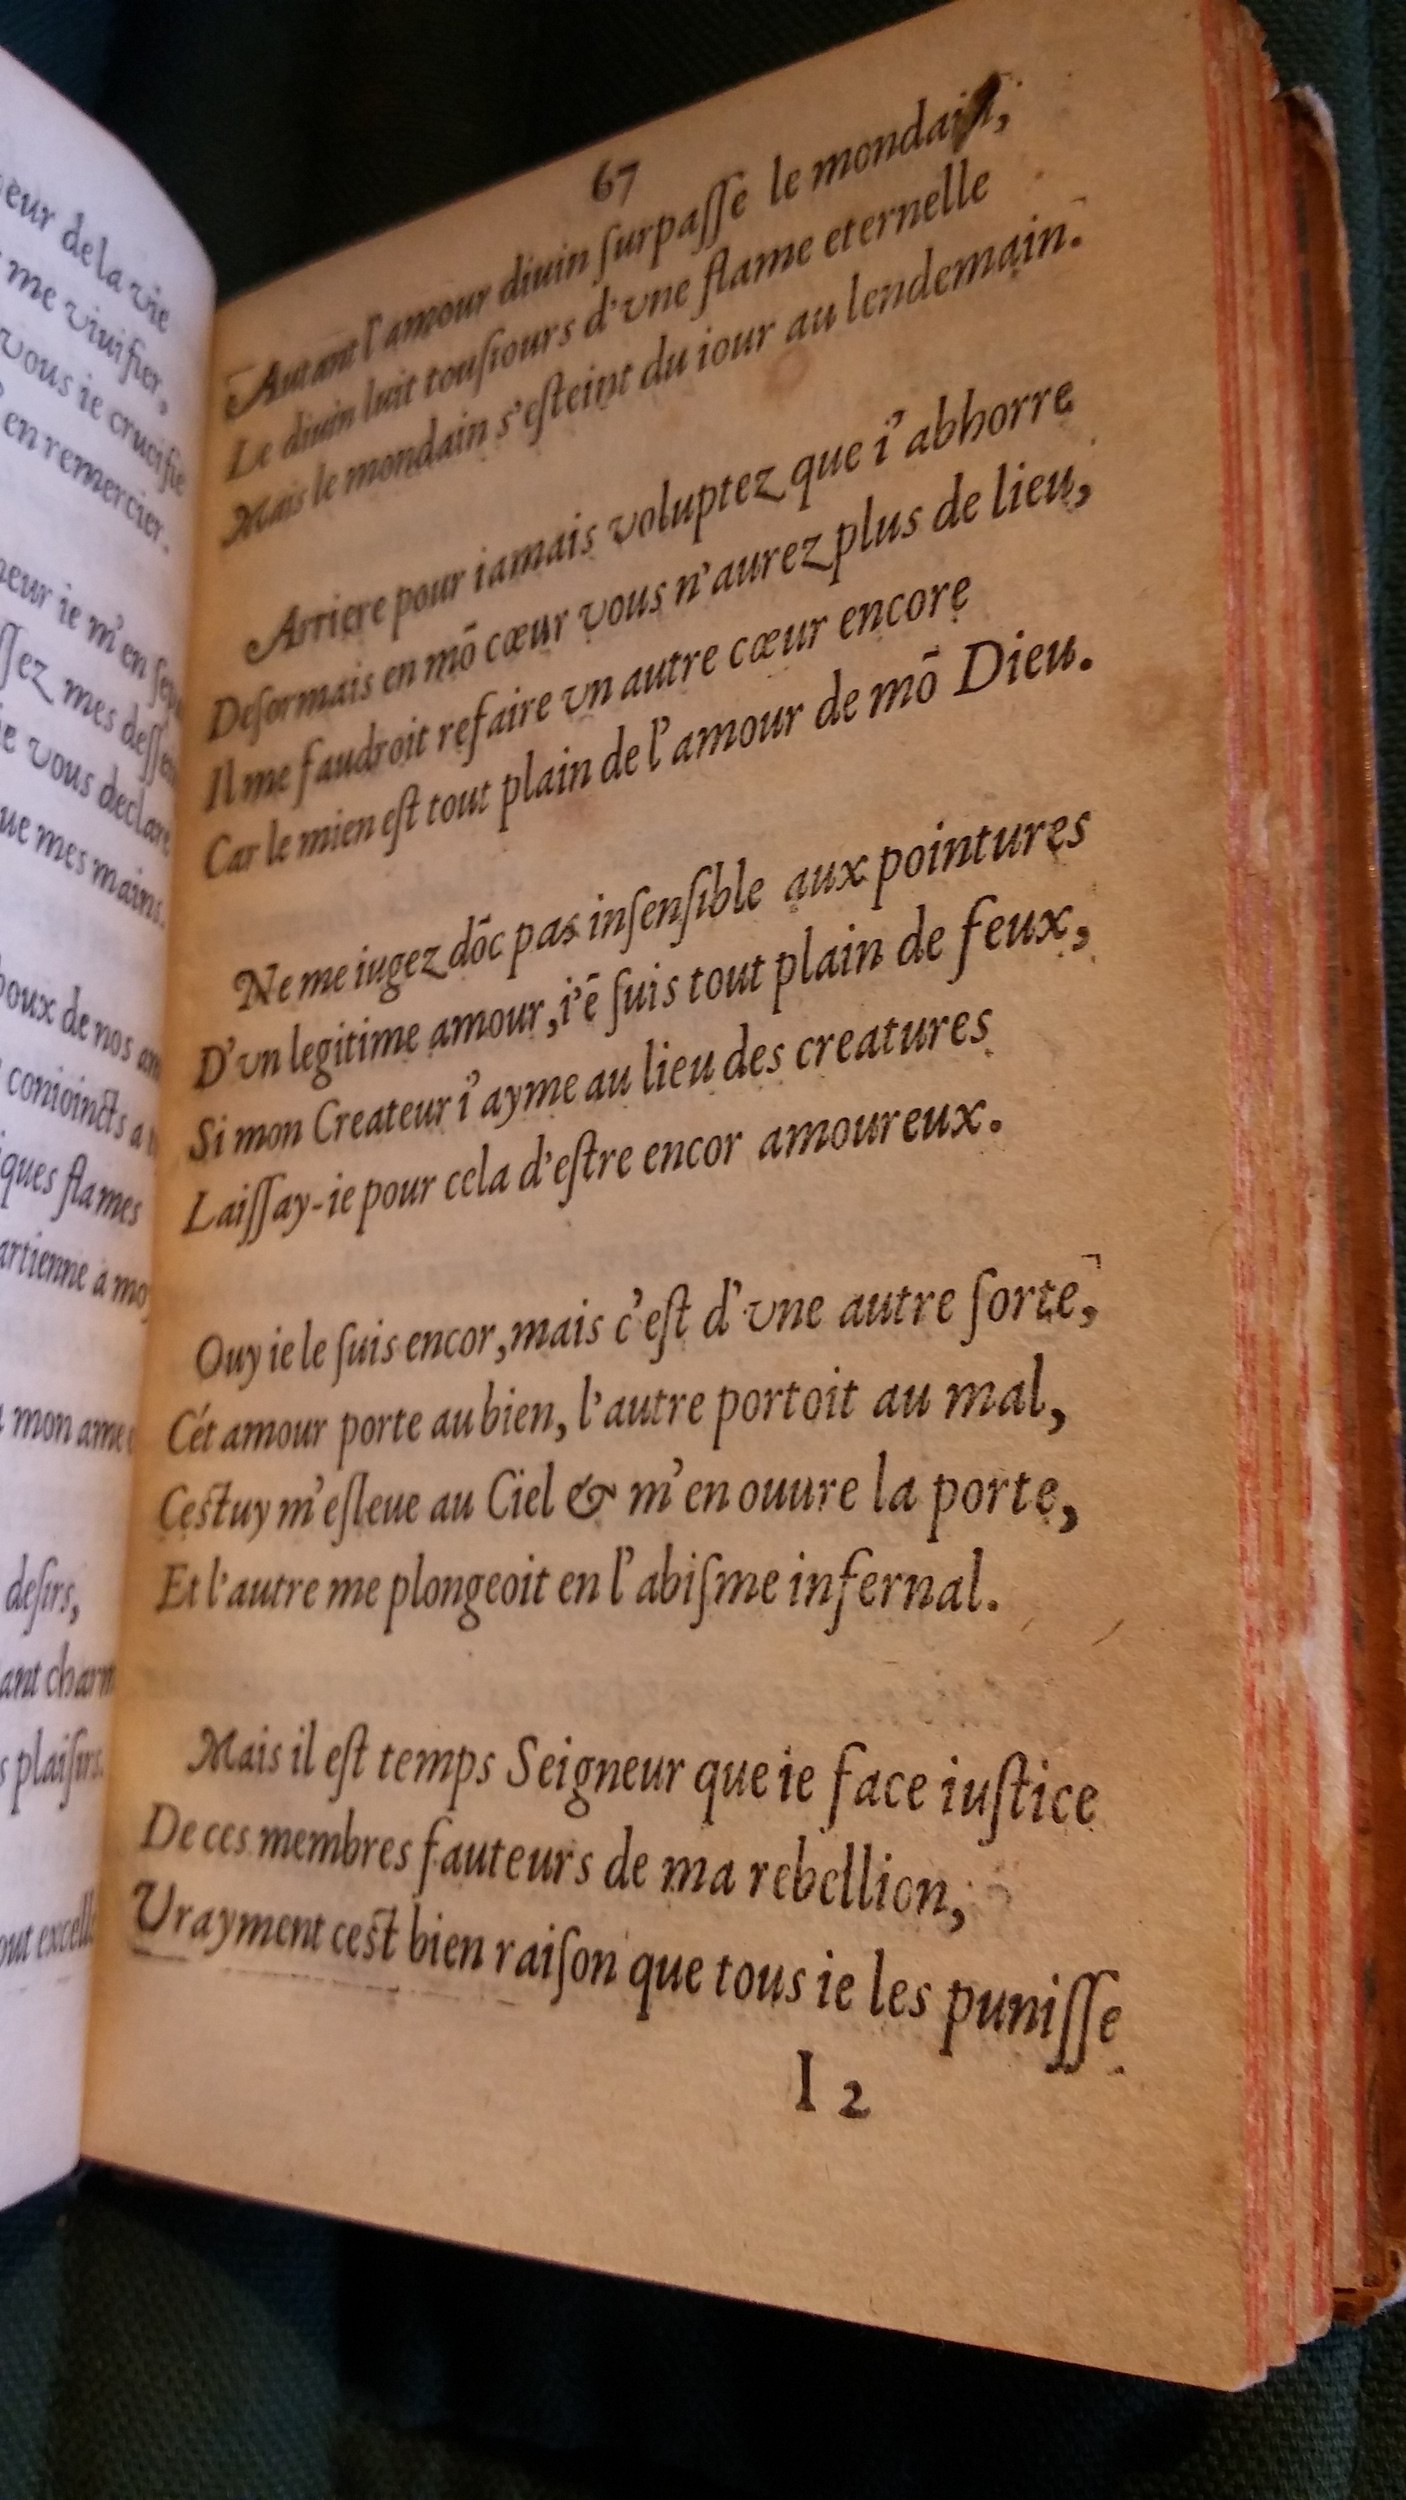 eur de la vie
me viuifier,
vous ie crucifie
en remercier.
ie m'en
mes
vous declare
mes mains.
de nos
conioincts a
flames
a
mon ame
desirs,
plaisirs.
67
Autant l'amour diuin ſurpaſſe le mondain,
Le diuin luit touſiours d'vne flame eternelle
Mais le mondain s'eſteint du iour au lendemain.
Arriere pour iamais voluptez que i'abhorre
Deſormais en mō cœur vous n'aurez plus de lieu,
Il me faudroit refaire vn autre cœur encore
Car le mien eſt tout plain de l'amour de mō Dieu.
Ne me iugez dōc pas inſenſible aux pointures
D'vn legitime amour, i'ē ſuis tout plain de feux,
Si mon Createur i'ayme au lieu des creatures
Laiſſay-ie pour cela d'eſtre encor amoureux.
Ouy ie le ſuis encor, mais c'eſt d'vne autre ſorte,
Cét amour porte au bien, l'autre portoit au mal,
Ceſtuy m'eſleue au Ciel & m'en ouure la porte,
Et l'autre me plongeoit en l'abiſme infernal.
Mais il eſt temps Seigneur que ie face iuſtice
De ces membres fauteurs de ma rebellion,
Vrayment ceſt bien raiſon que tous ie les puniſſe
I 2